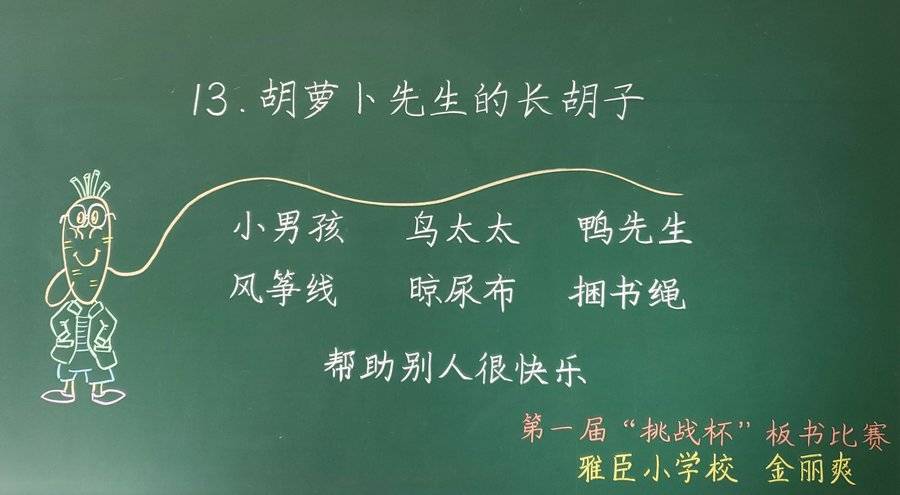 13.胡萝卜先生的长胡子
小男孩 鸟太太 鸭先生
风筝线 晾尿布 捆书绳
帮助别人很快乐
第一届“挑战杯”板书比赛
雅臣小学校 金丽爽